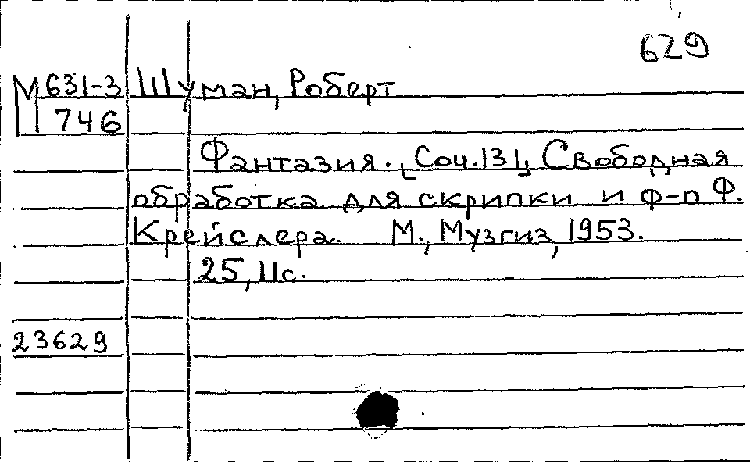 629
М631-3 Шуман, Роберт
746
Фантазия. [Соч.131] Свободная
обработка для скрипки и ф-п Ф.
Крейслера. М., Музгиз, 1953.
25, 11с.
23629